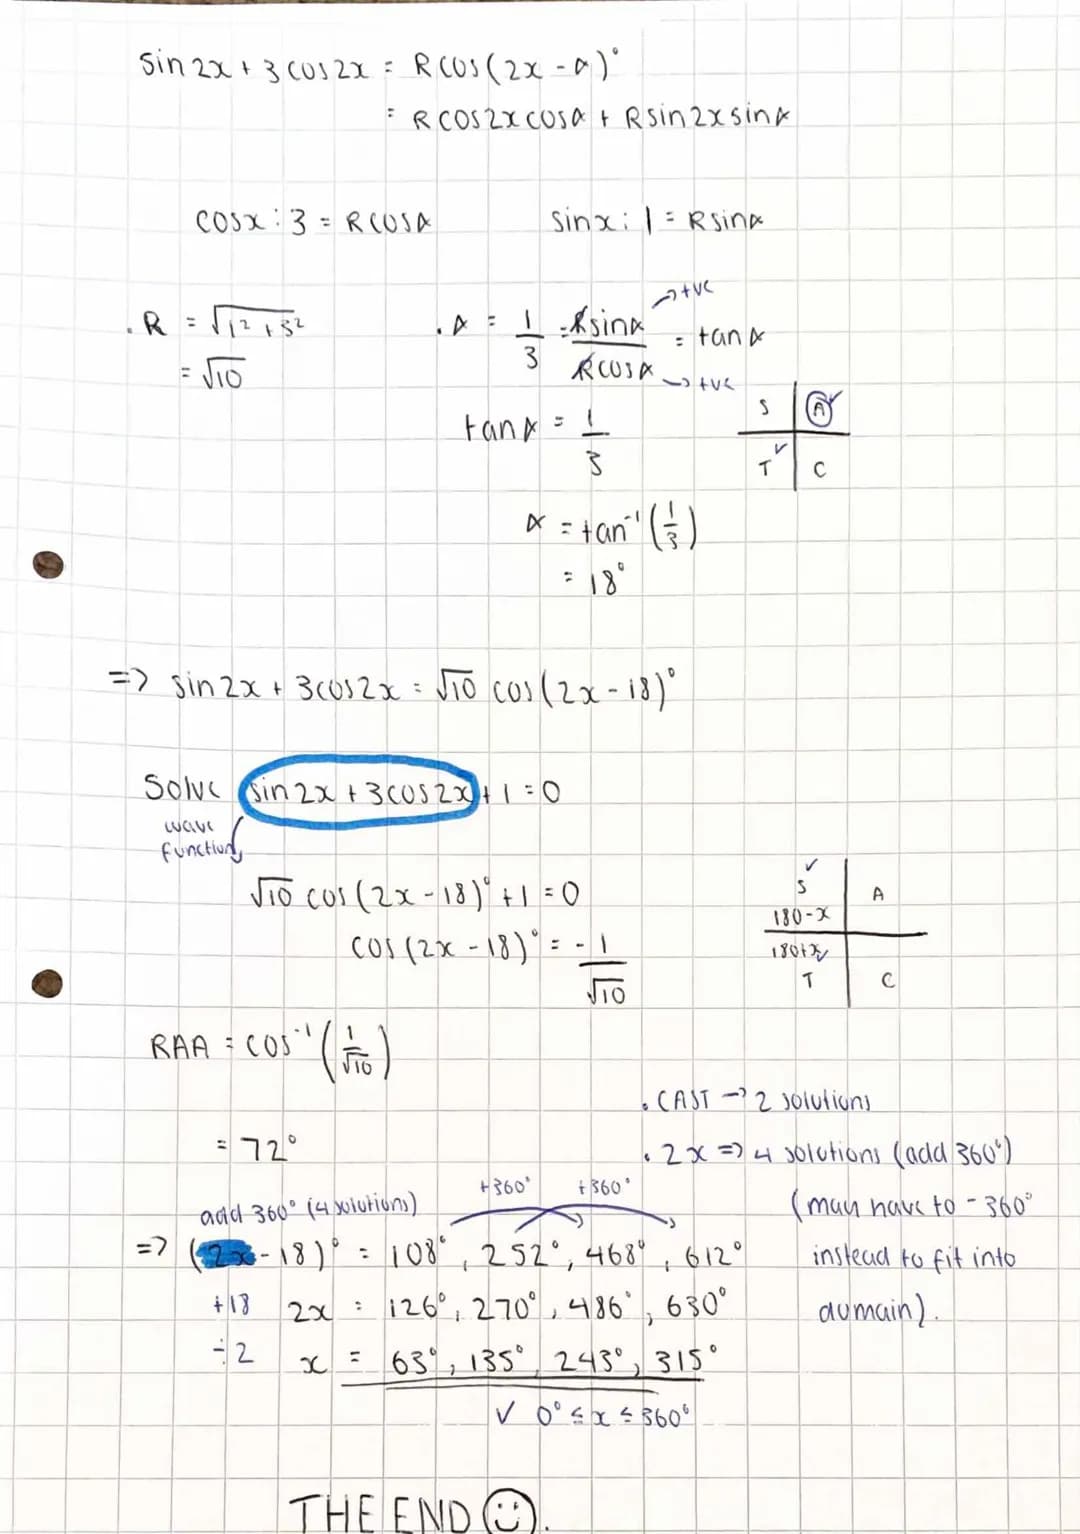 sin 2x + 3 cos 2x = R cos (2x - α)°
= R cos 2x cos α + R sin 2x sin α
cos x : 3 = R cos α   sin x : 1 = R sin α
. R = √(1² + 3²)   . α = 1/3 = R sin α / R cos α = tan α
→ +ve
→ +ve
= √10
tan α = 1/3
S A ✓
T ✓ C
α = tan⁻¹ (1/3)
= 18°
=> sin 2x + 3 cos 2x = √10 cos (2x - 18)°
Solve sin 2x + 3 cos 2x + 1 = 0
wave
function
√10 cos (2x - 18)° + 1 = 0
cos (2x - 18)° = - 1/√10
✓
S A
180 - x
180 + x ✓
T C
RAA = cos⁻¹ (1/√10)
= 72°
. CAST → 2 solutions
. 2x => 4 solutions (add 360°)
(may have to - 360°
instead to fit into
domain).
add 360° (4 solutions)
+360° +360°
=> (2x - 18)° = 108°, 252°, 468°, 612°
+18 2x = 126°, 270°, 486°, 630°
÷2 x = 63°, 135°, 243°, 315°
✓ 0° ≤ x ≤ 360°
THE END ☺.